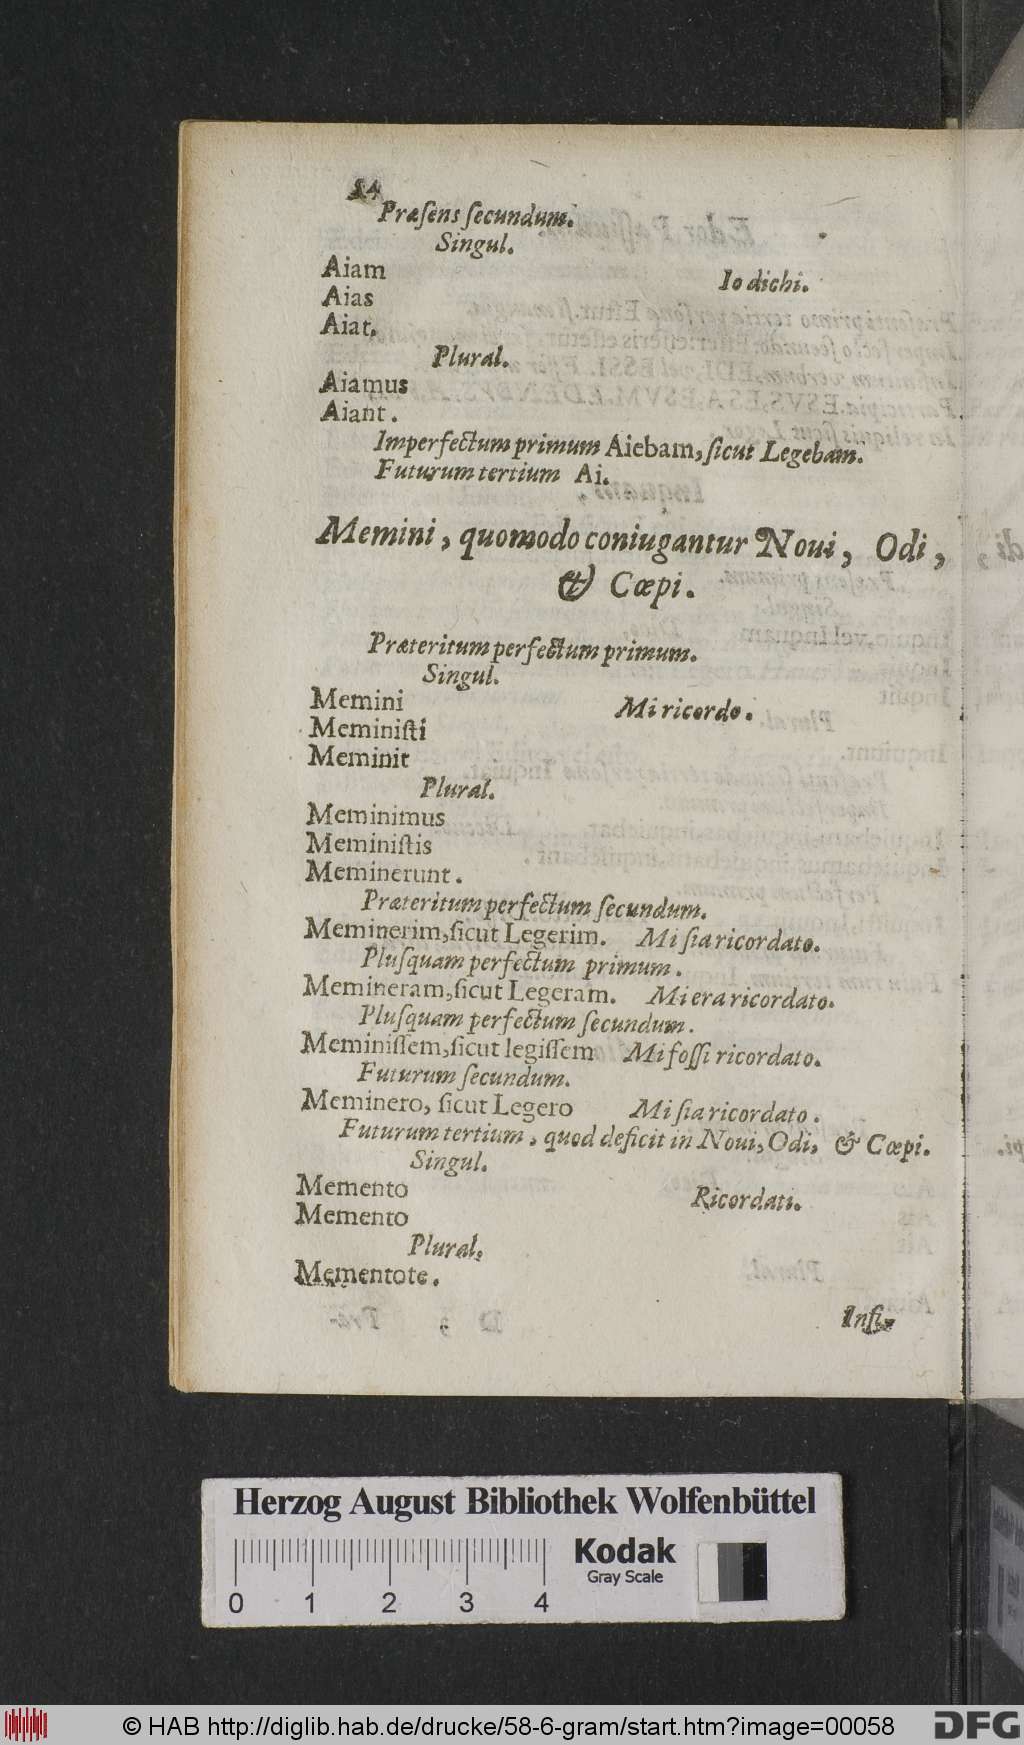 54
Præſens ſecundum.
Singul.
Aiam Io dichi.
Aias
Aiat.
Plural.
Aiamus
Aiant.
Imperfectum primum Aiebam, ſicut Legebam.
Futurum tertium Ai.
Memini, quomodo coniugantur Noui, Odi,
& Cœpi.
Præteritum perfectum primum.
Singul.
Memini Mi ricordo.
Meminiſti
Meminit
Plural.
Meminimus
Meminiſtis
Meminerunt.
Præteritum perfectum ſecundum.
Meminerim, ſicut Legerim. Mi ſia ricordato.
Pluſquam perfectum primum.
Memineram, ſicut Legeram. Mi era ricordato.
Pluſquam perfectum ſecundum.
Meminiſſem, ſicut legiſſem Mi foſſi ricordato.
Futurum ſecundum.
Meminero, ſicut Legero Mi ſia ricordato.
Futurum tertium, quod deficit in Noui, Odi, & Cœpi.
Singul.
Memento Ricordati.
Memento
Plural.
Mementote.
Infi-
Herzog August Bibliothek Wolfenbüttel
Kodak
Gray Scale
0 1 2 3 4
© HAB http://diglib.hab.de/drucke/58-6-gram/start.htm?image=00058
DFG